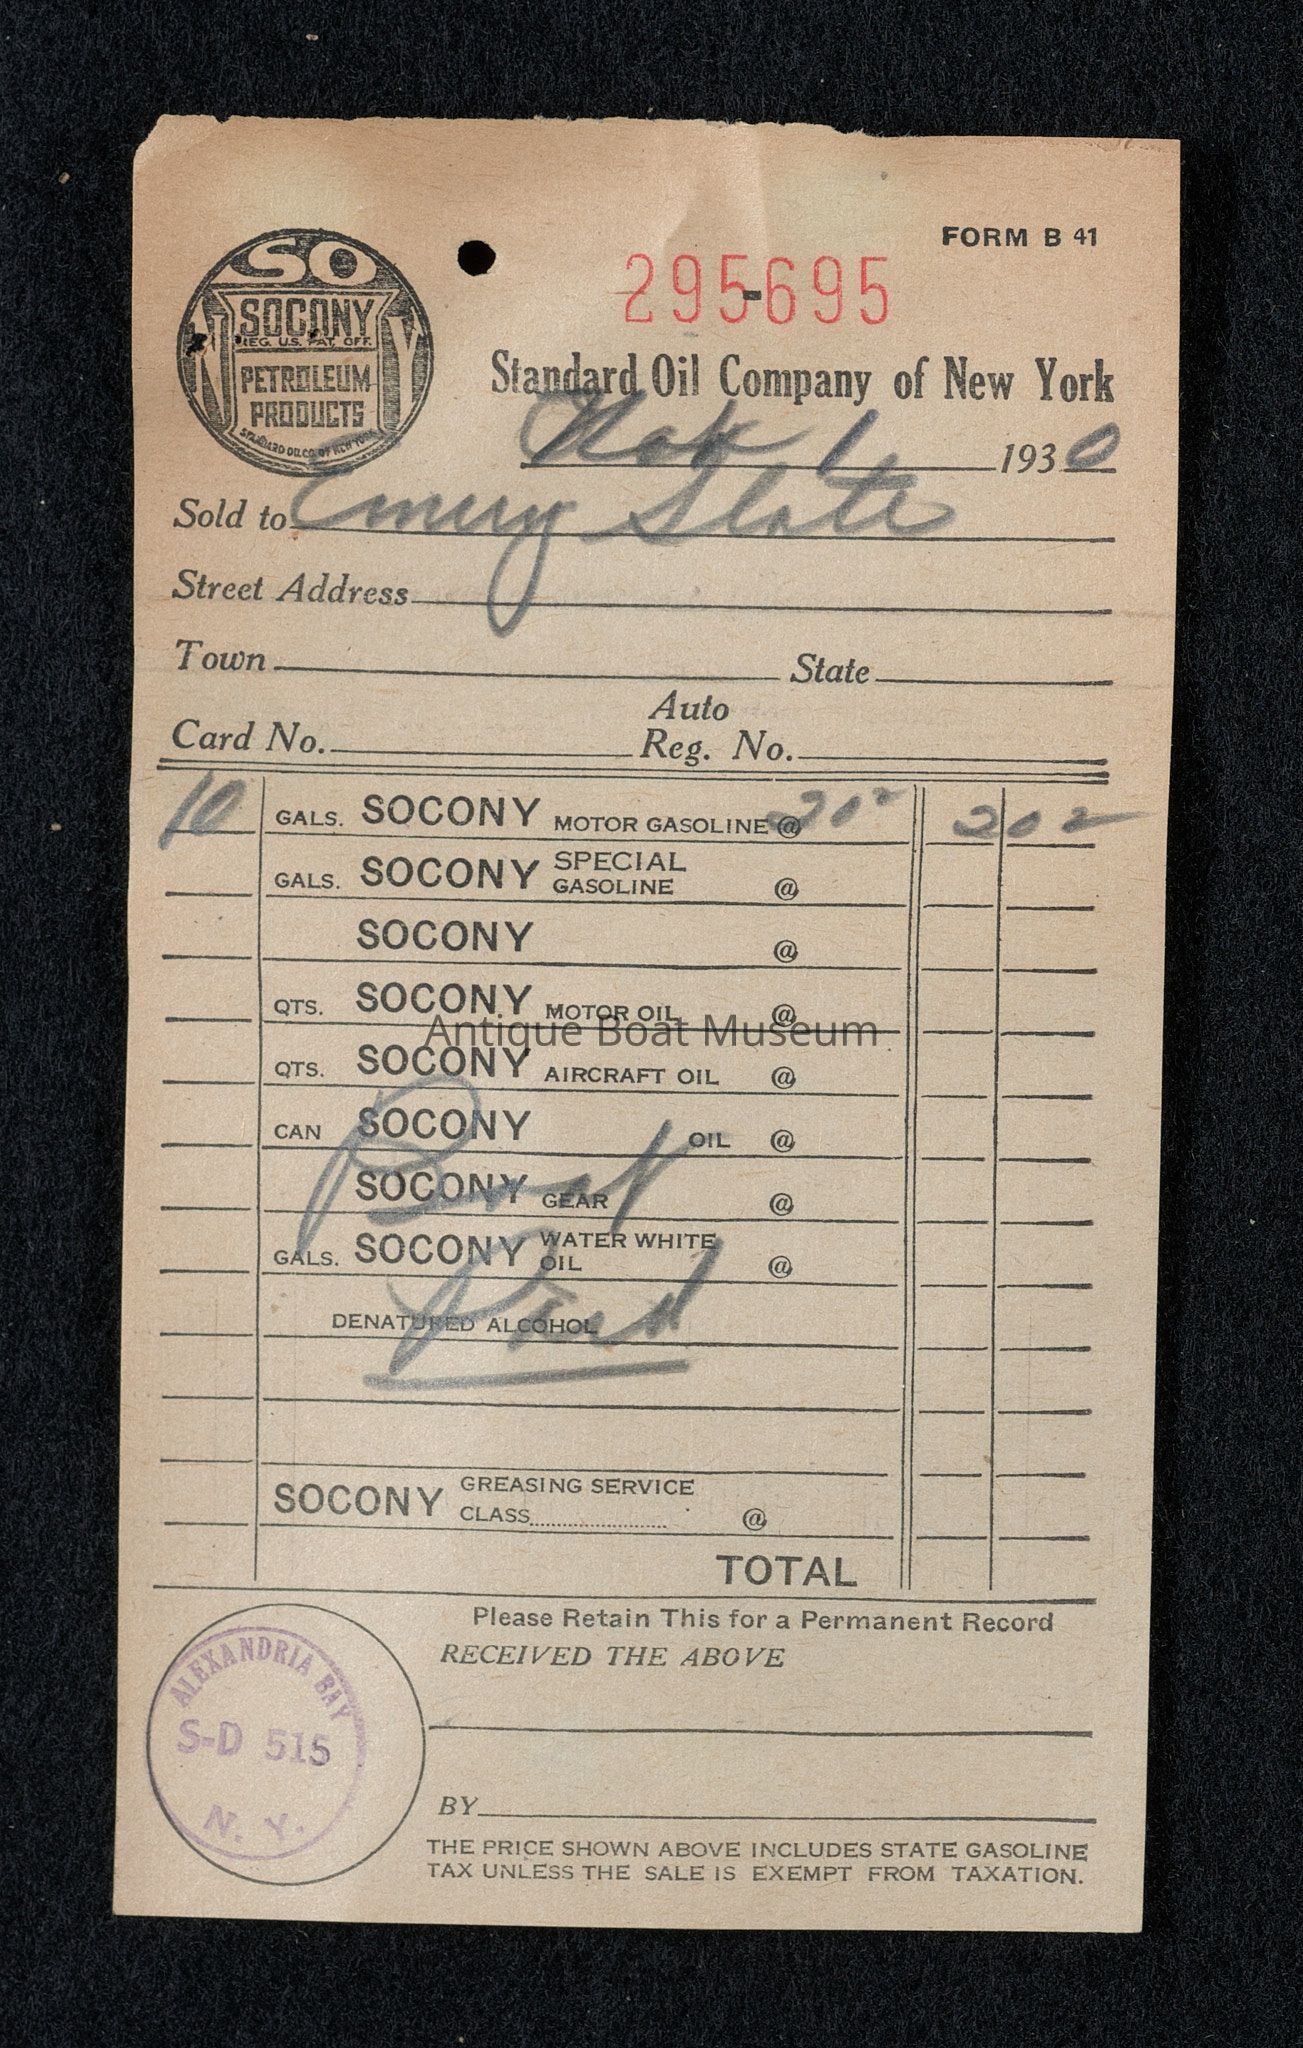 FORM B 41
SO
SOCONY
REG. U.S. PAT. OFF.
N Y
PETROLEUM
PRODUCTS
STANDARD OIL CO. OF NEW YORK
295-695
Standard Oil Company of New York
1 1930
Sold to Emery Slate
Street Address
Town State
Card No. Auto Reg. No.
10 GALS. SOCONY MOTOR GASOLINE @ 20² 2 02
GALS. SOCONY SPECIAL GASOLINE @
SOCONY @
QTS. SOCONY MOTOR OIL @
Antique Boat Museum
QTS. SOCONY AIRCRAFT OIL @
CAN SOCONY OIL @
SOCONY GEAR @
GALS. SOCONY WATER WHITE OIL @
Paid
DENATURED ALCOHOL
SOCONY GREASING SERVICE
CLASS @
TOTAL
Please Retain This for a Permanent Record
RECEIVED THE ABOVE
ALEXANDRIA BAY
S-D 515
N. Y.
BY
THE PRICE SHOWN ABOVE INCLUDES STATE GASOLINE
TAX UNLESS THE SALE IS EXEMPT FROM TAXATION.